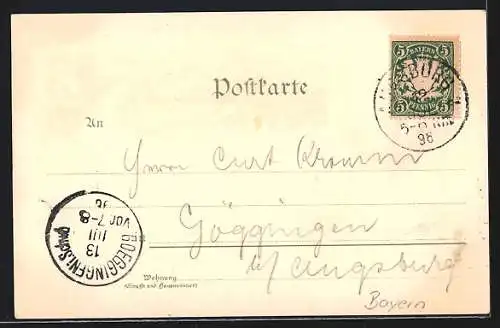 BAYERN
5 5
5 PFENNIG 5
5-6 NM
98
Postkarte
An
Herrn Curt
Göggingen
b/ Augsburg
Bayern
GOEGGINGEN
13
JUL
VOR 7-8
98
Wohnung
(Straße und Hausnummer)